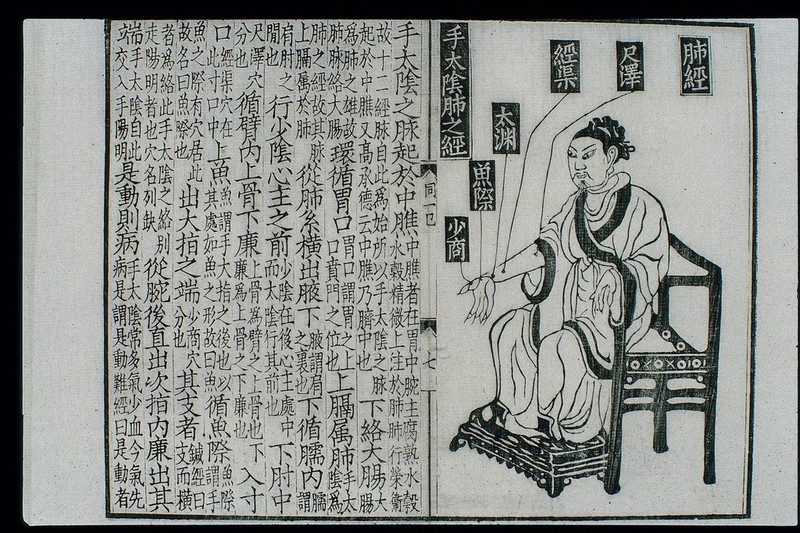 肺經
尺澤
經渠
太淵
魚際
少商
手太陰肺之經
七
手太陰之脉起於中膲中膲者在胃中脘主腐熟水穀水穀精微上注於肺肺行榮衛
故十二經脉自此為始所以手太陰之脉起於中膲又高承德云中膲乃臍中也下絡大腸大腸
為肺之雄故肺脉絡大腸環循胃口胃口謂胃之上口賁門之位也上膈屬肺手太陰為
肺之經故其脉上膈屬於肺從肺系橫出腋下腋謂肩之裏也下循臑內臑謂
肩肘之間也行少陰心主之前少陰在後心主處中而太陰行其前也下肘中
尺澤穴分也循臂內上骨下廉上骨為臂之上骨也下廉為上骨之下廉也入寸
口經渠穴在此寸口中上魚魚謂手大指之後也以其處如魚之形故曰魚循魚際魚際謂手
魚之際有穴居此故名曰魚際也出大指之端少商穴分也其支者鍼經曰支而橫
者為絡此手太陰之絡別走陽明者也穴名列缺從腕後直出次指內廉出其
端手太陰自此交入手陽明是動則病手太陰常多氣少血今氣先病是謂是動難經曰是動者